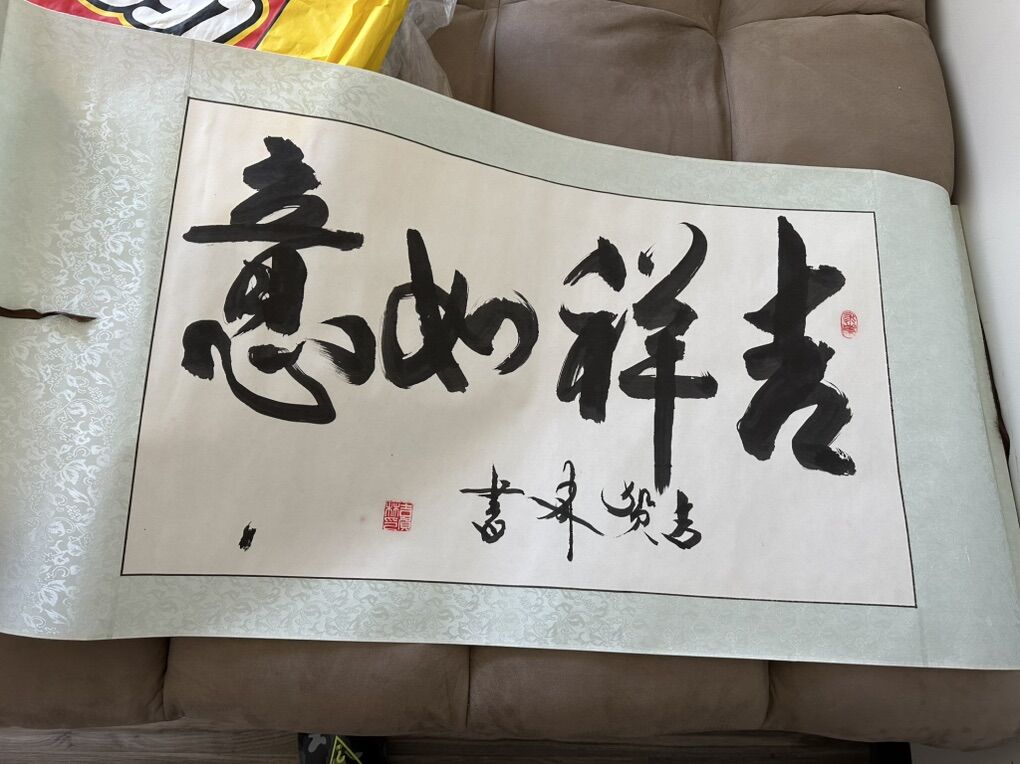 吉祥如意
吉書